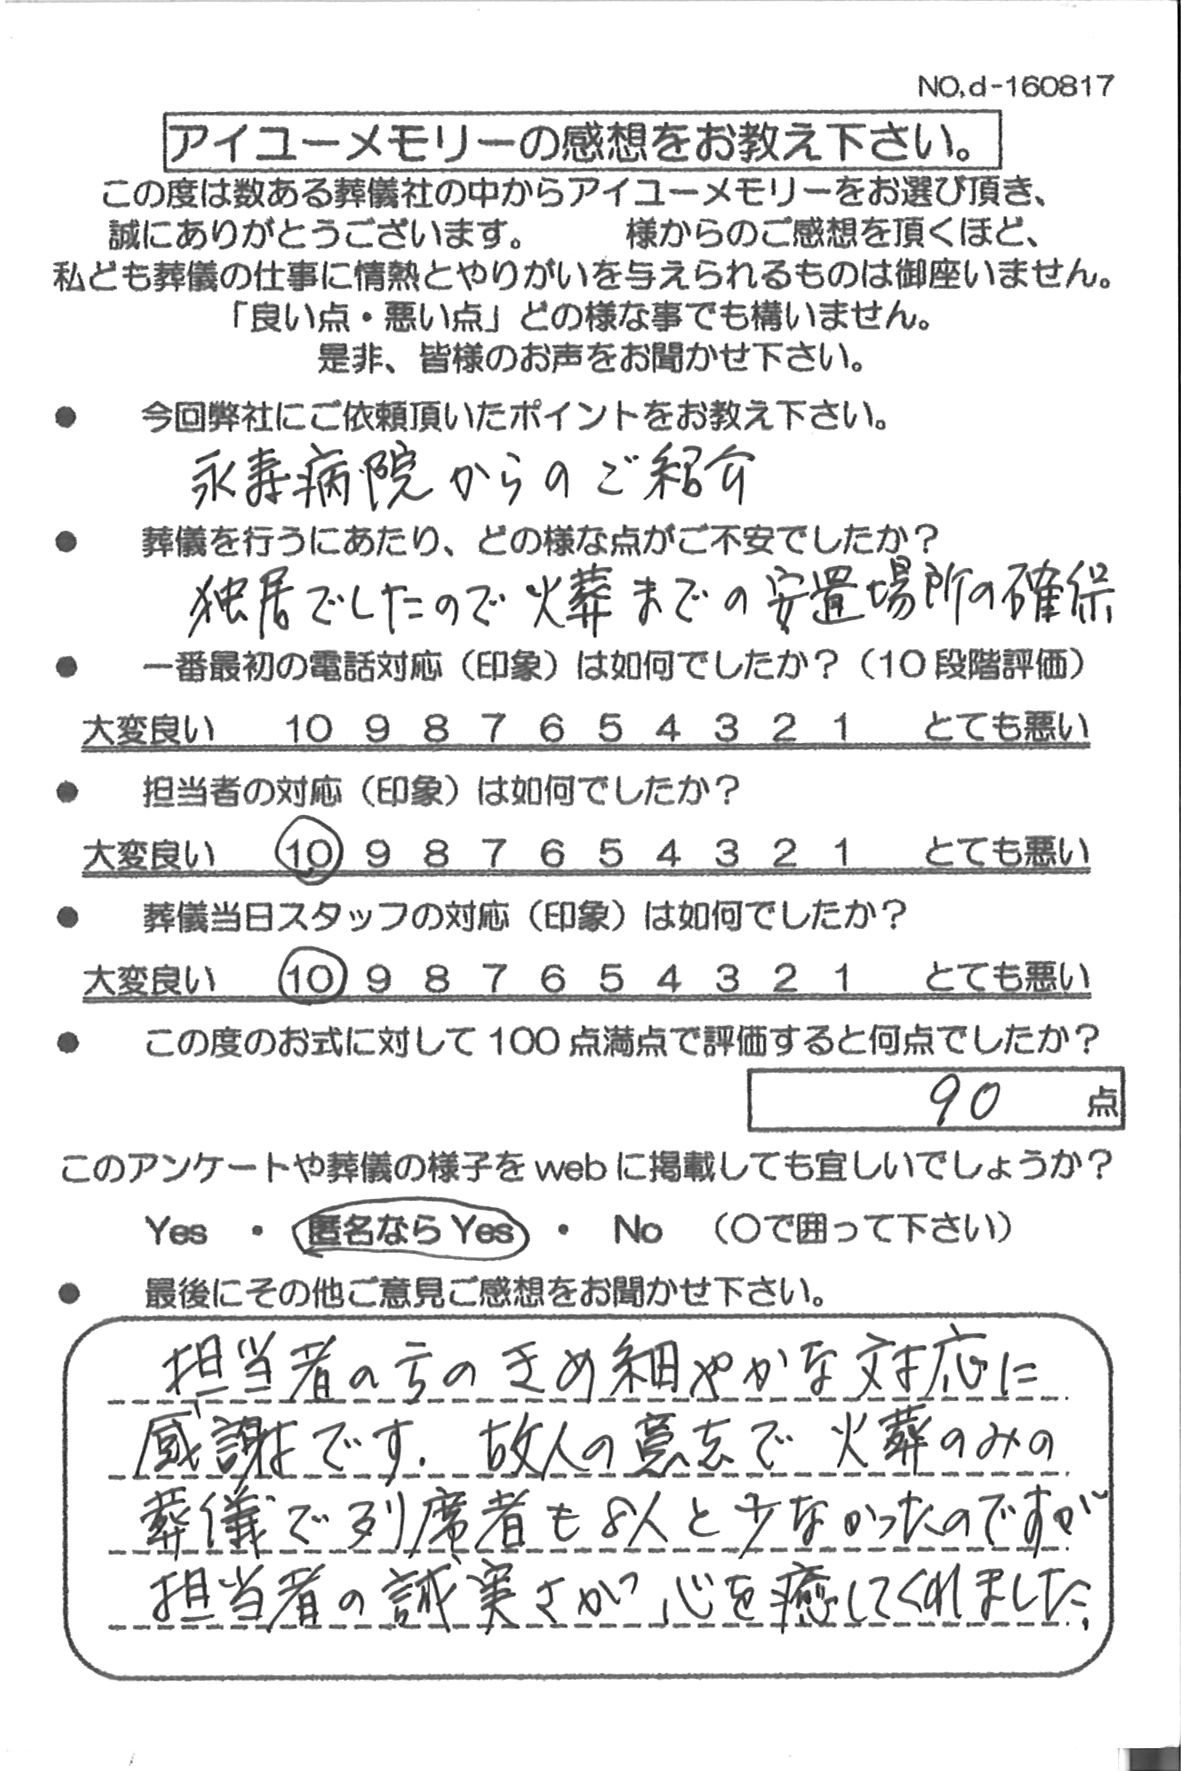 NO,d-160817
アイユーメモリーの感想をお教え下さい。
この度は数ある葬儀社の中からアイユーメモリーをお選び頂き、
誠にありがとうございます。 様からのご感想を頂くほど、
私ども葬儀の仕事に情熱とやりがいを与えられるものは御座いません。
「良い点・悪い点」どの様な事でも構いません。
是非、皆様のお声をお聞かせ下さい。
● 今回弊社にご依頼頂いたポイントをお教え下さい。
永寿病院からのご紹介
● 葬儀を行うにあたり、どの様な点がご不安でしたか？
独居でしたので火葬までの安置場所の確保
● 一番最初の電話対応（印象）は如何でしたか？（10段階評価）
大変良い 10 9 8 7 6 5 4 3 2 1 とても悪い
● 担当者の対応（印象）は如何でしたか？
大変良い 10 9 8 7 6 5 4 3 2 1 とても悪い
● 葬儀当日スタッフの対応（印象）は如何でしたか？
大変良い 10 9 8 7 6 5 4 3 2 1 とても悪い
● この度のお式に対して100点満点で評価すると何点でしたか？
90 点
このアンケートや葬儀の様子をwebに掲載しても宜しいでしょうか？
Yes ・ 匿名ならYes ・ No （〇で囲って下さい）
● 最後にその他ご意見ご感想をお聞かせ下さい。
担当者の方のきめ細やかな対応に
感謝です. 故人の意志で火葬のみの
葬儀で列席者も8人と少なかったのですが
担当者の誠実さが心を癒してくれました,